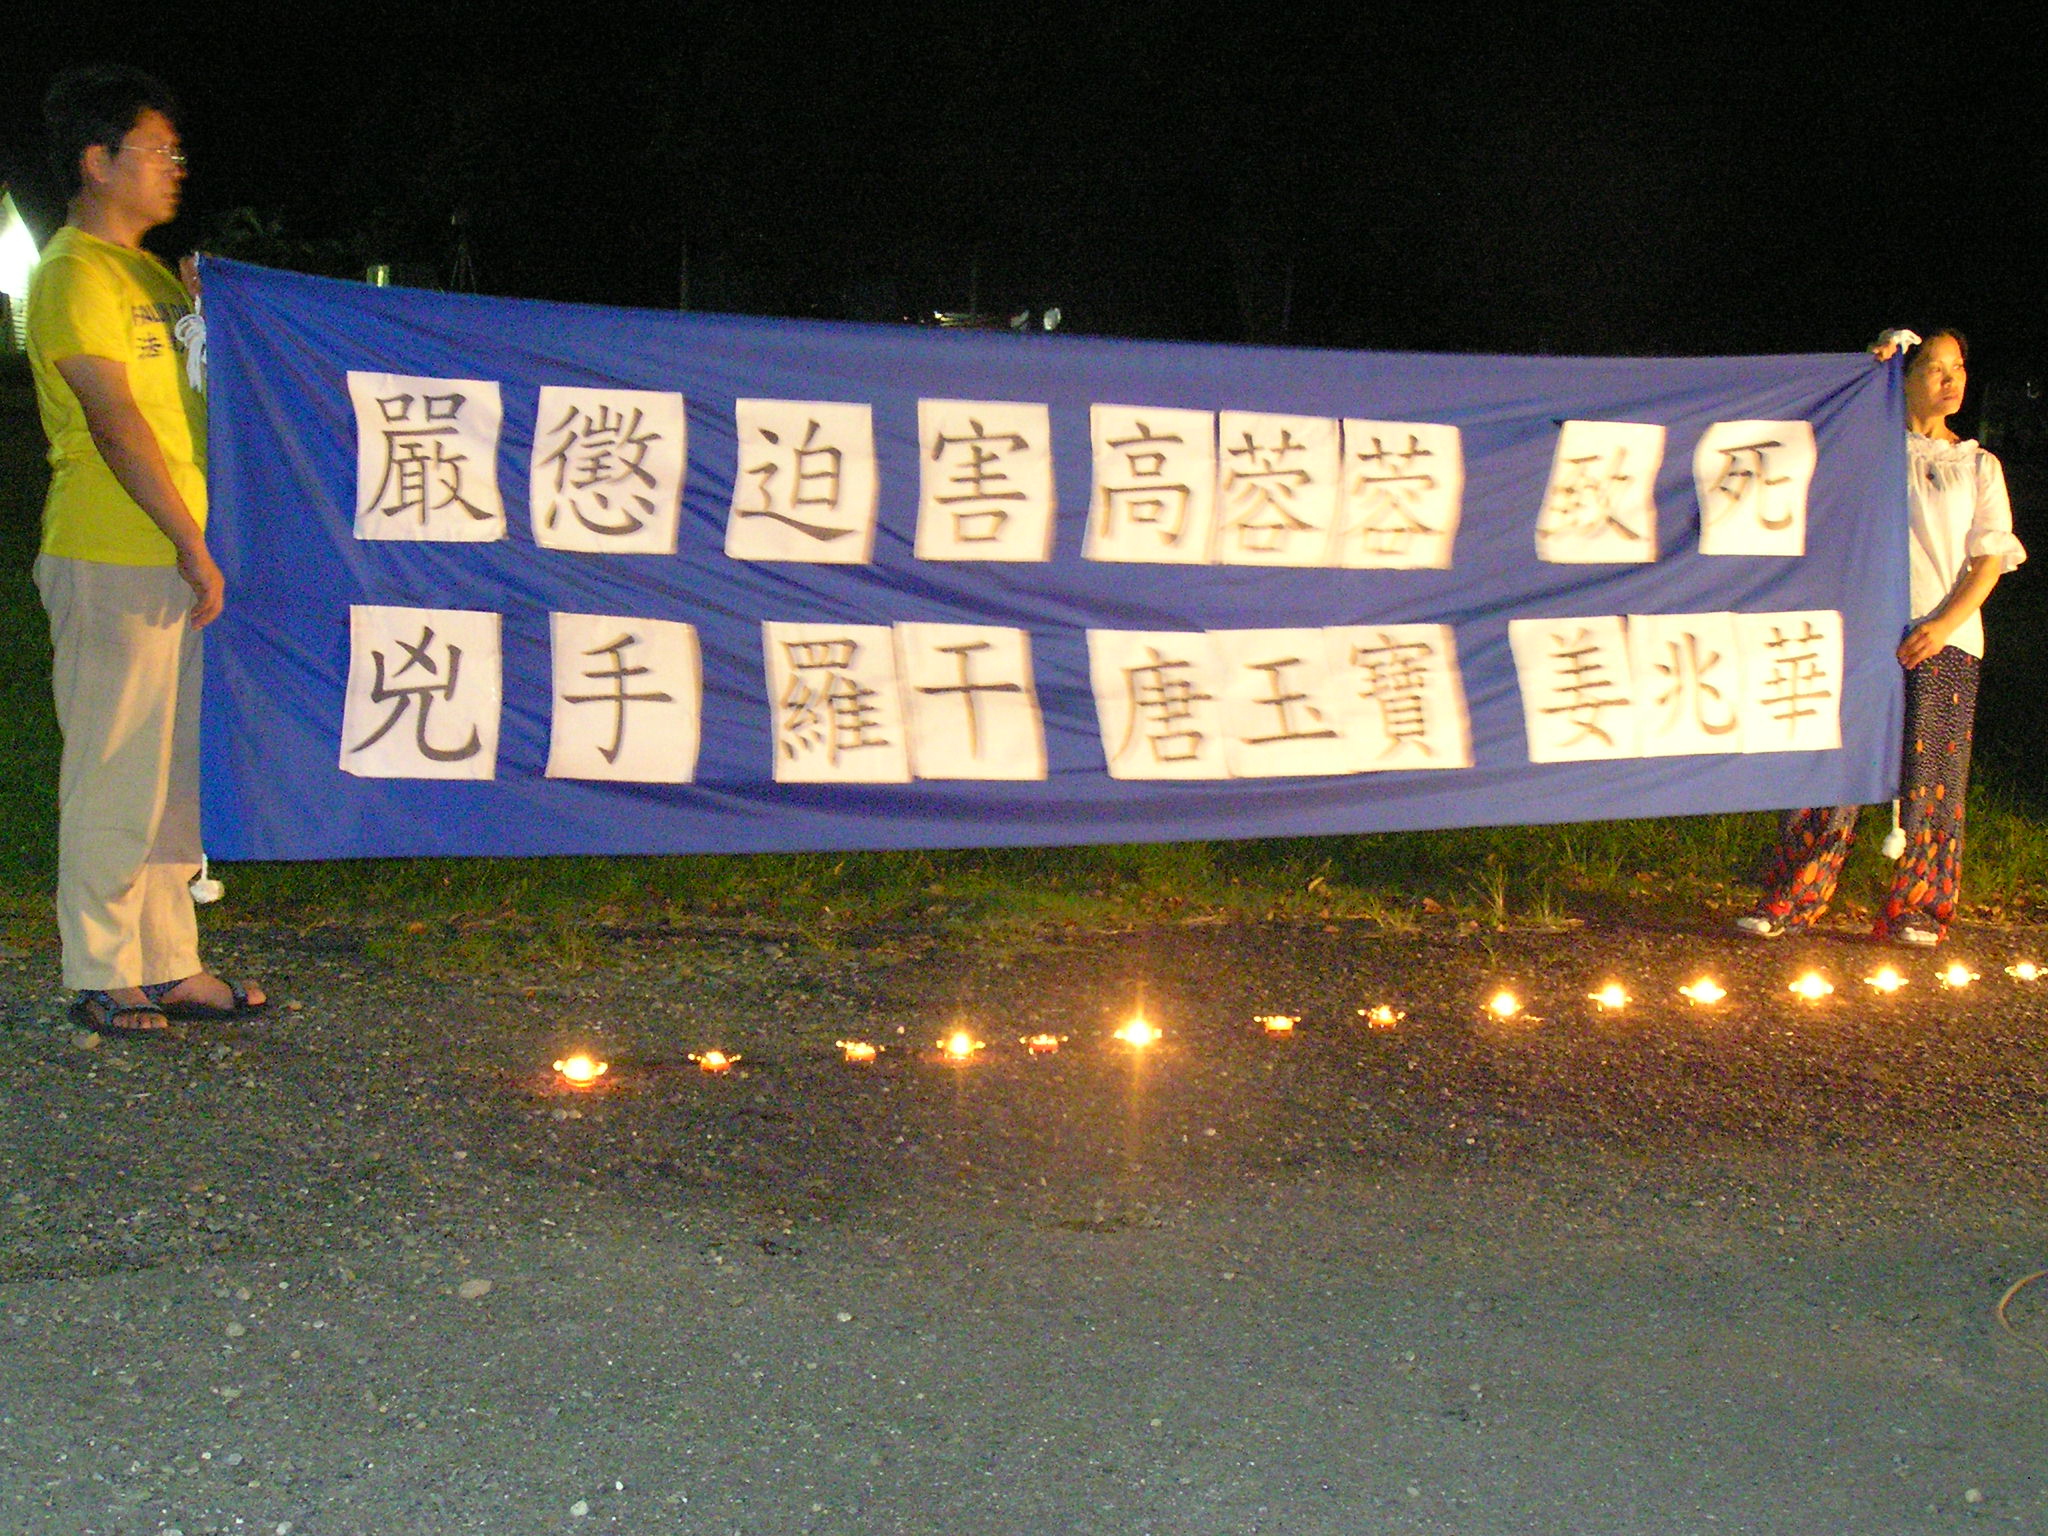 嚴懲迫害高蓉蓉致死
兇手羅干唐玉寶姜兆華
FALUN
法